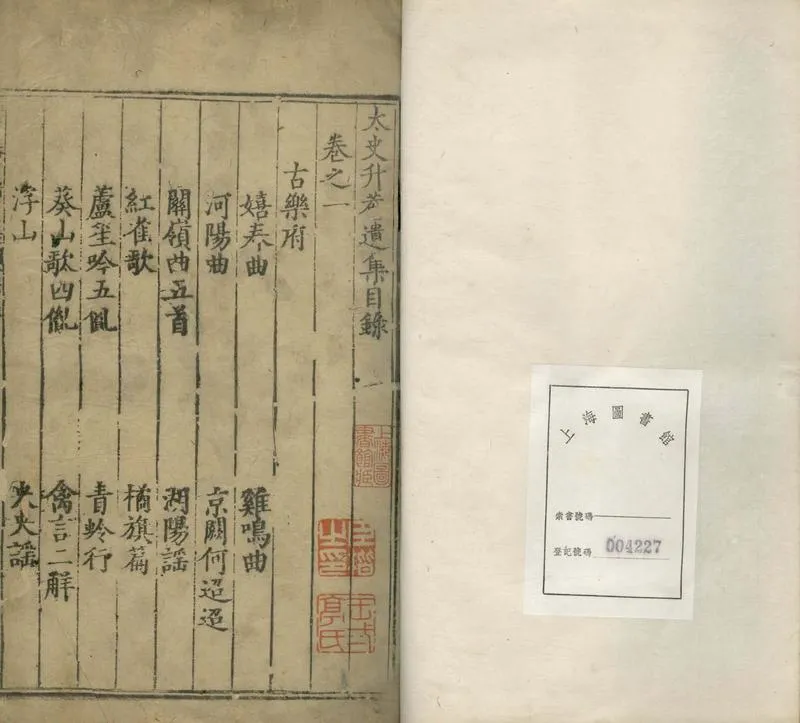 太史升菴遺集目錄 一
卷之一
古樂府
嬉春曲 雞鳴曲
河陽曲 京闕何迢迢
關嶺曲五首 湖陽謡
紅雀歌 橘旗篇
蘆笙吟五佩 青蛉行
葵山歌四佩 禽言二解
浮山
上海圖書館藏
上海圖書館
索書號碼
登記號碼 004227